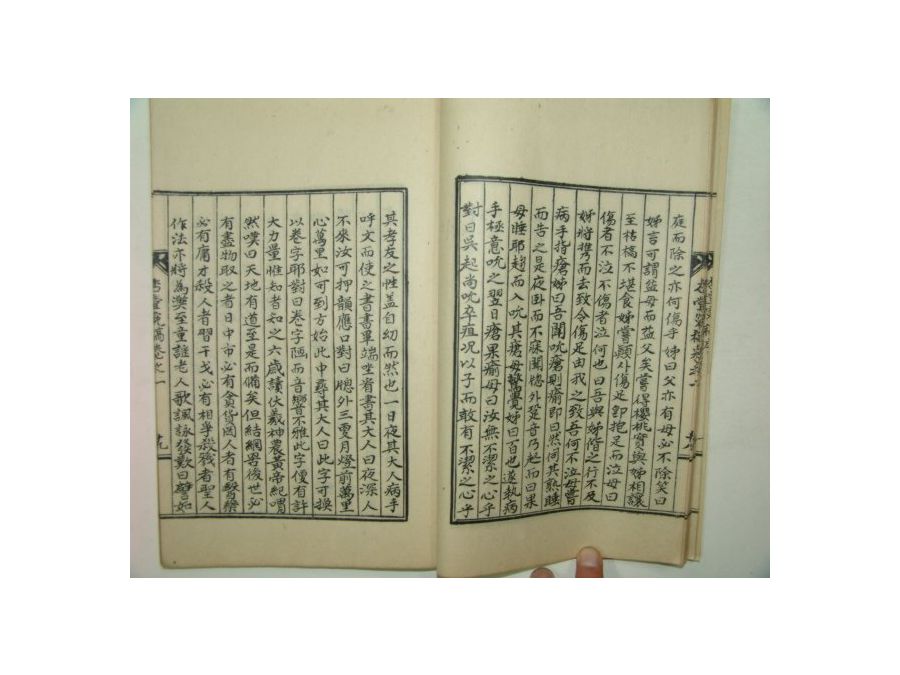 庭而除之亦何傷乎姊曰父亦有母必不除笑曰
姊言可謂益母而益父矣嘗得櫻桃實與姊相讓
至枯槁不堪食姊嘗顚外傷足卽抱足而泣母曰
傷者不泣不傷者泣何也曰吾與姊階之行不及
姊將携而去致令傷足由我之致吾何不泣母嘗
病手指瘡姊曰吾聞吮瘡則瘉卽曰然伺其熟睡
而告之是夜卧而不寐聞牕外跫音乃起而曰果
母睡耶趨而入吮其瘡母驚覺姊曰百也遂執病
手極意吮之翌日瘡果瘉母曰汝無不潔之心乎
對曰吳起尚吮卒疽况以子而敢有不潔之心乎
其孝友之性盖自幼而然也一日夜其大人病手
呼文而使之書書畢端坐看書其大人曰夜深人
不來汝可押韻應口對曰牕外三更月燈前萬里
心萬里如可到方始此中尋其大人曰此字可換
以卷字耶對曰卷字陋而音響不雅此字優有許
大力量惟知者知之六歲讀伏羲神農黃帝紀喟
然嘆曰天地有道至是而備矣但結網罟後世必
有盡物取之者日中市必有貪貨罔人者有醫藥
必有庸才殺人者習干戈必有相爭殺戮者聖人
作法亦將爲獘至童誰老人歌諷詠發歎曰譬如